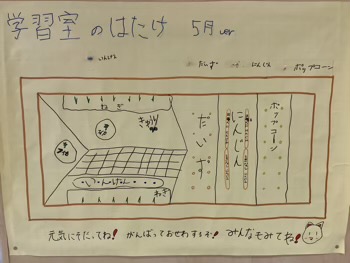 学習室のはたけ 5月ver
いんげん だいず にんじん ポップコーン
ねぎ
きゅうり
だいず
にんじん
ポップコーン
いんげん
ねぎ
元気にそだってね! がんばっておせわするぞ! みんなもみてね!